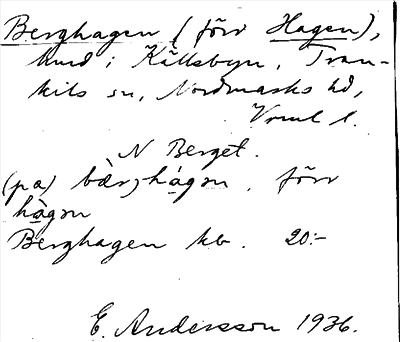 Berghagen (förr Hagen),
hmd i Källsbyn, Tran-
kils sn, Nordmarks hd,
Vrml l.
N Berget.
(pa) bær,hágən, förr
hàgən
Berghagen kb. 20:-
E. Andersson 1936.